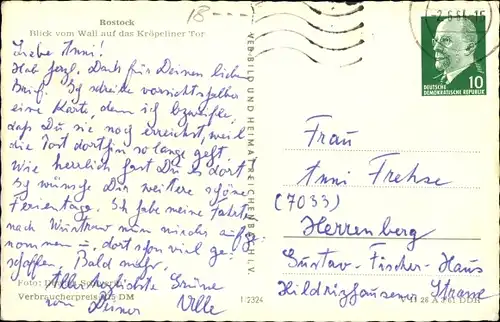 Rostock
Blick vom Wall auf das Kröpeliner Tor
Liebe Anni!
Hab herzl. Dank für Deinen lieben
Brief. Ich schreibe vorsichtshalber
eine Karte, denn ich bezweifle,
daß Du sie noch erreichst, weil
die Post dorthin so lange geht.
Wie herrlich hast Du es dort
Ich wünsche Dir weitere schöne
Ferientage. Ich habe meine Fahrt
nach Wustrow nun wieder aufge-
nommen u. dort schon viel ge-
schaffen. Bald mehr.
Allerherzlichste Grüße
von Deiner Ulle
Foto:
Verbraucherpreis DM
1/2324
VEB BILD UND HEIMAT REICHENBACH I. V.
DEUTSCHE
DEMOKRATISCHE REPUBLIK
10
Frau
Anni Frehse
(7033)
Herrenberg
Gustav-Fischer-Haus
Hildrizhausener Strasse
DDR
18